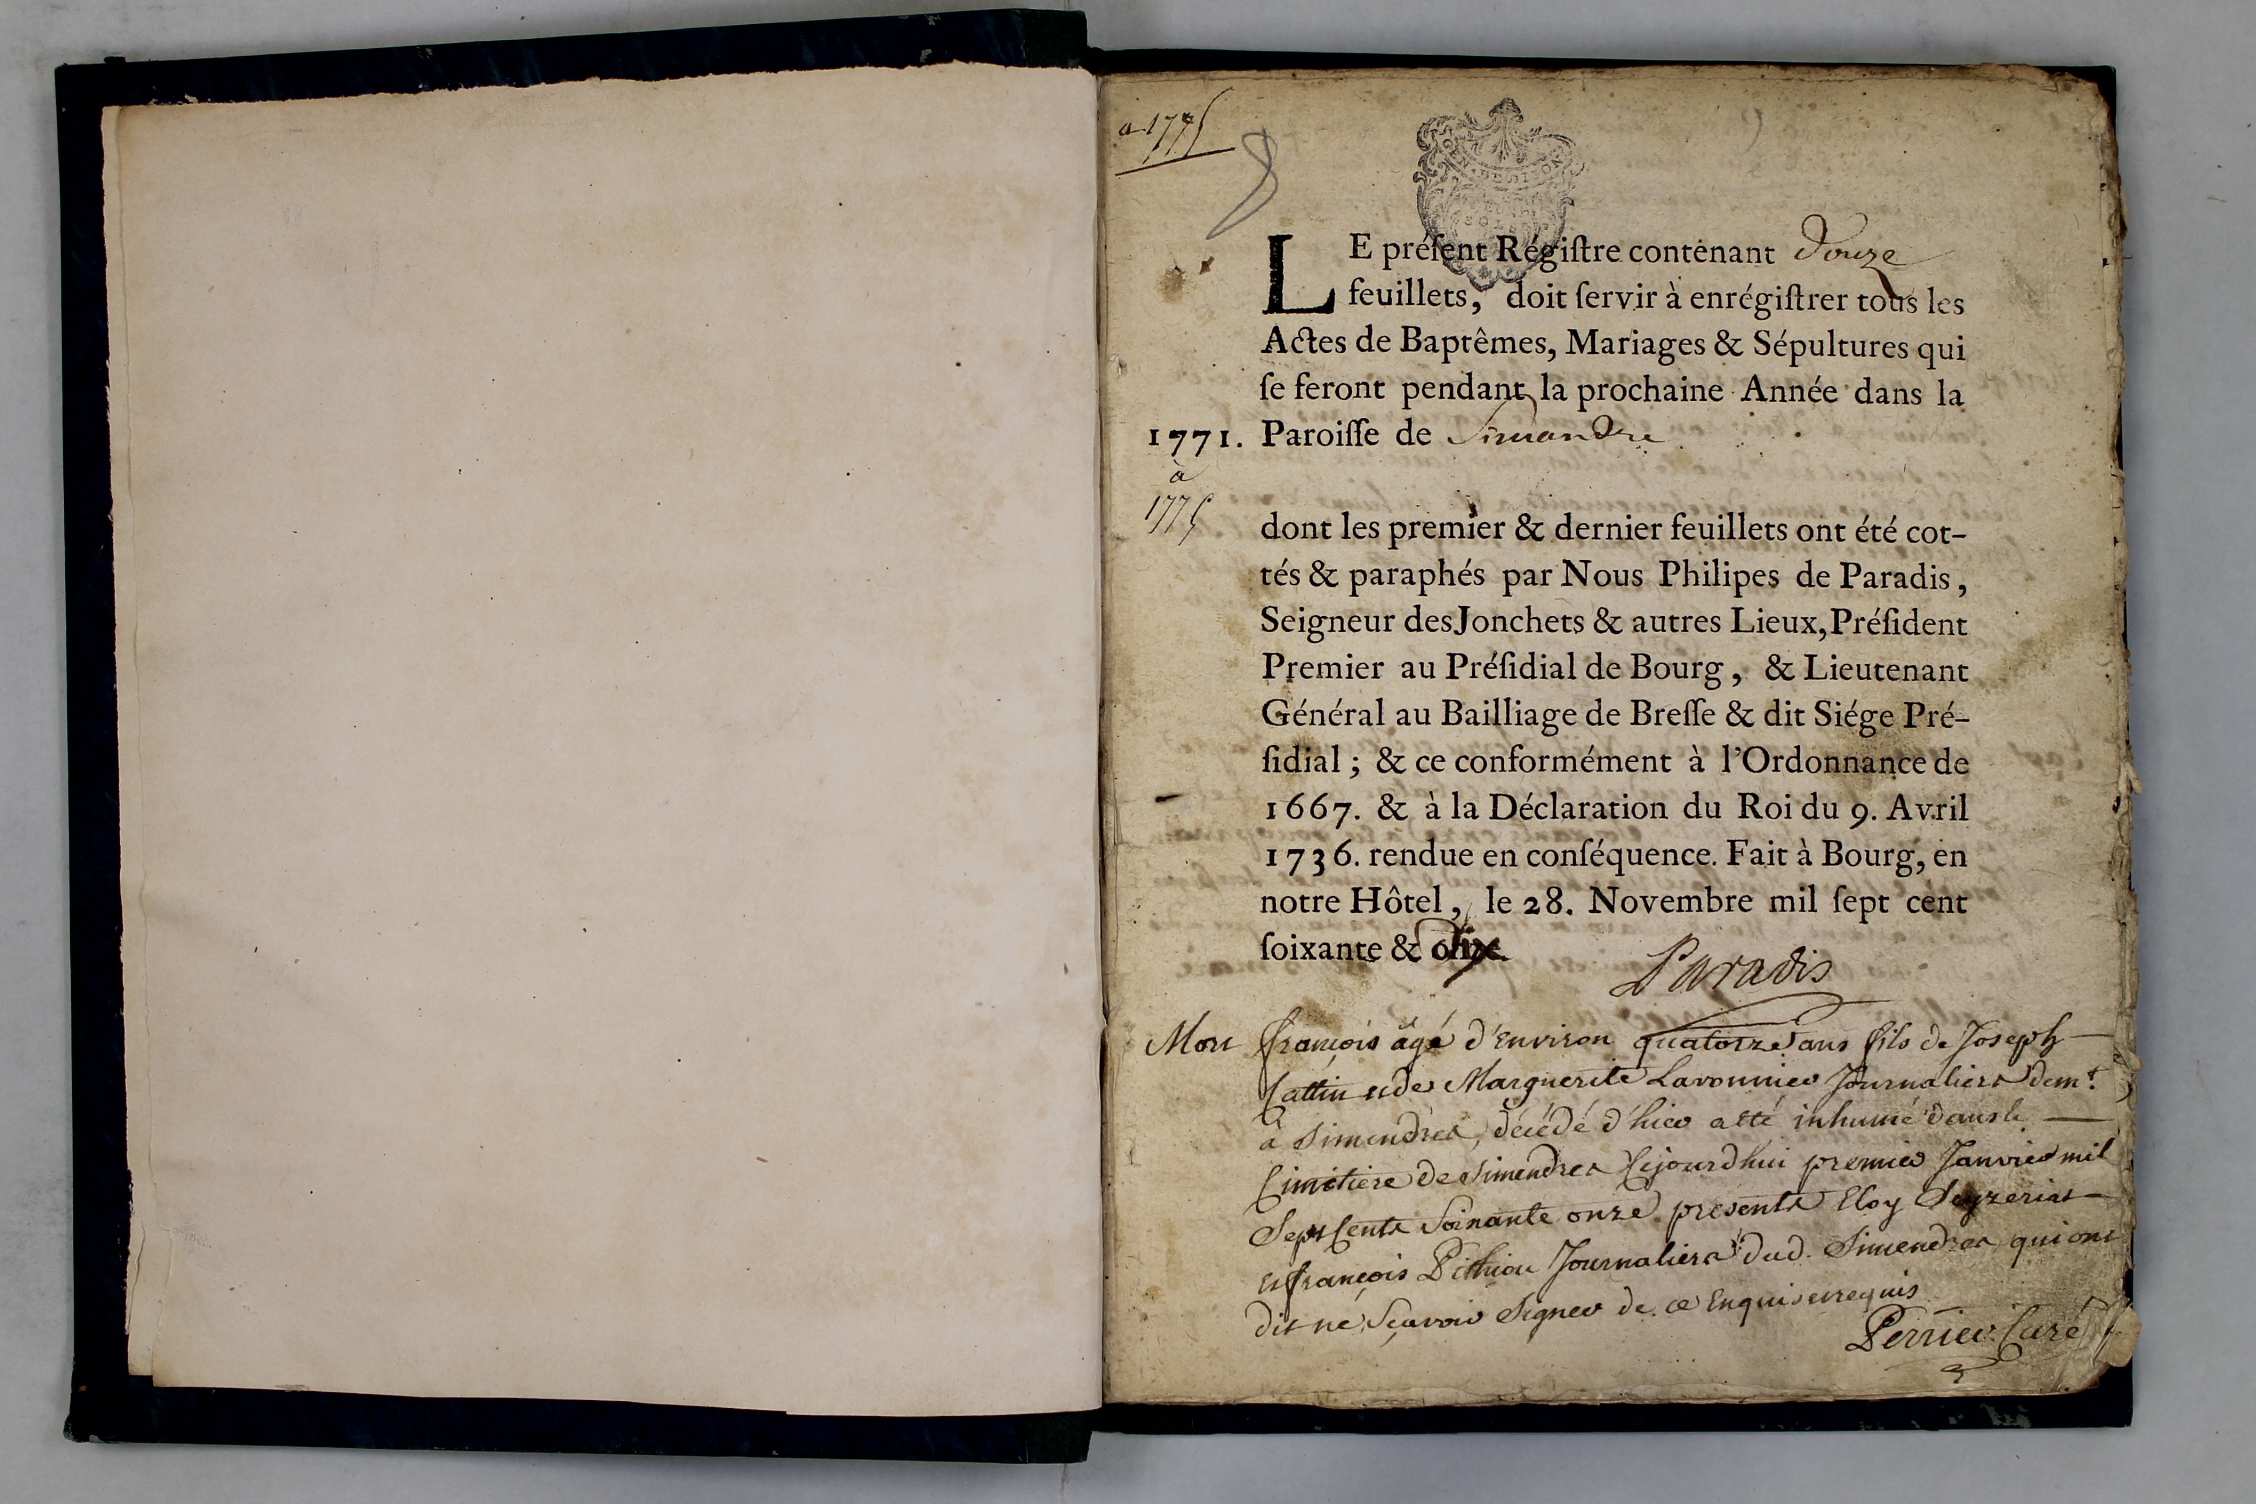 a 1775
8
LE préſent Régiſtre contenant Douze
feuillets, doit ſervir à enrégiſtrer tous les
Actes de Baptêmes, Mariages & Sépultures qui
ſe feront pendant la prochaine Année dans la
1771. Paroiſſe de Simandre
à
1775
dont les premier & dernier feuillets ont été cot-
tés & paraphés par Nous Philipes de Paradis,
Seigneur des Jonchets & autres Lieux, Préſident
Premier au Préſidial de Bourg, & Lieutenant
Général au Bailliage de Breſſe & dit Siége Pré-
ſidial ; & ce conformément à l'Ordonnance de
1667. & à la Déclaration du Roi du 9. Avril
1736. rendue en conſéquence. Fait à Bourg, en
notre Hôtel, le 28. Novembre mil ſept cent
ſoixante & dix
Paradis
Mort françois âgé d'Environ quatorze ans fils de Joseph
Cattin et de Marguerite Lavonnier Journaliers demt.
à Simendres, décédé d'hier a été inhumé dans le
Cimitiere de Simendres Cejourdhui premier Janvier mil
Sept Cents Soixante onze presents Eloy Seyzeriat
et françois Pithiou Journaliers dud. Simendres qui ont
dit ne Sçavoir Signer de ce Enquis et requis
Perrier Curé